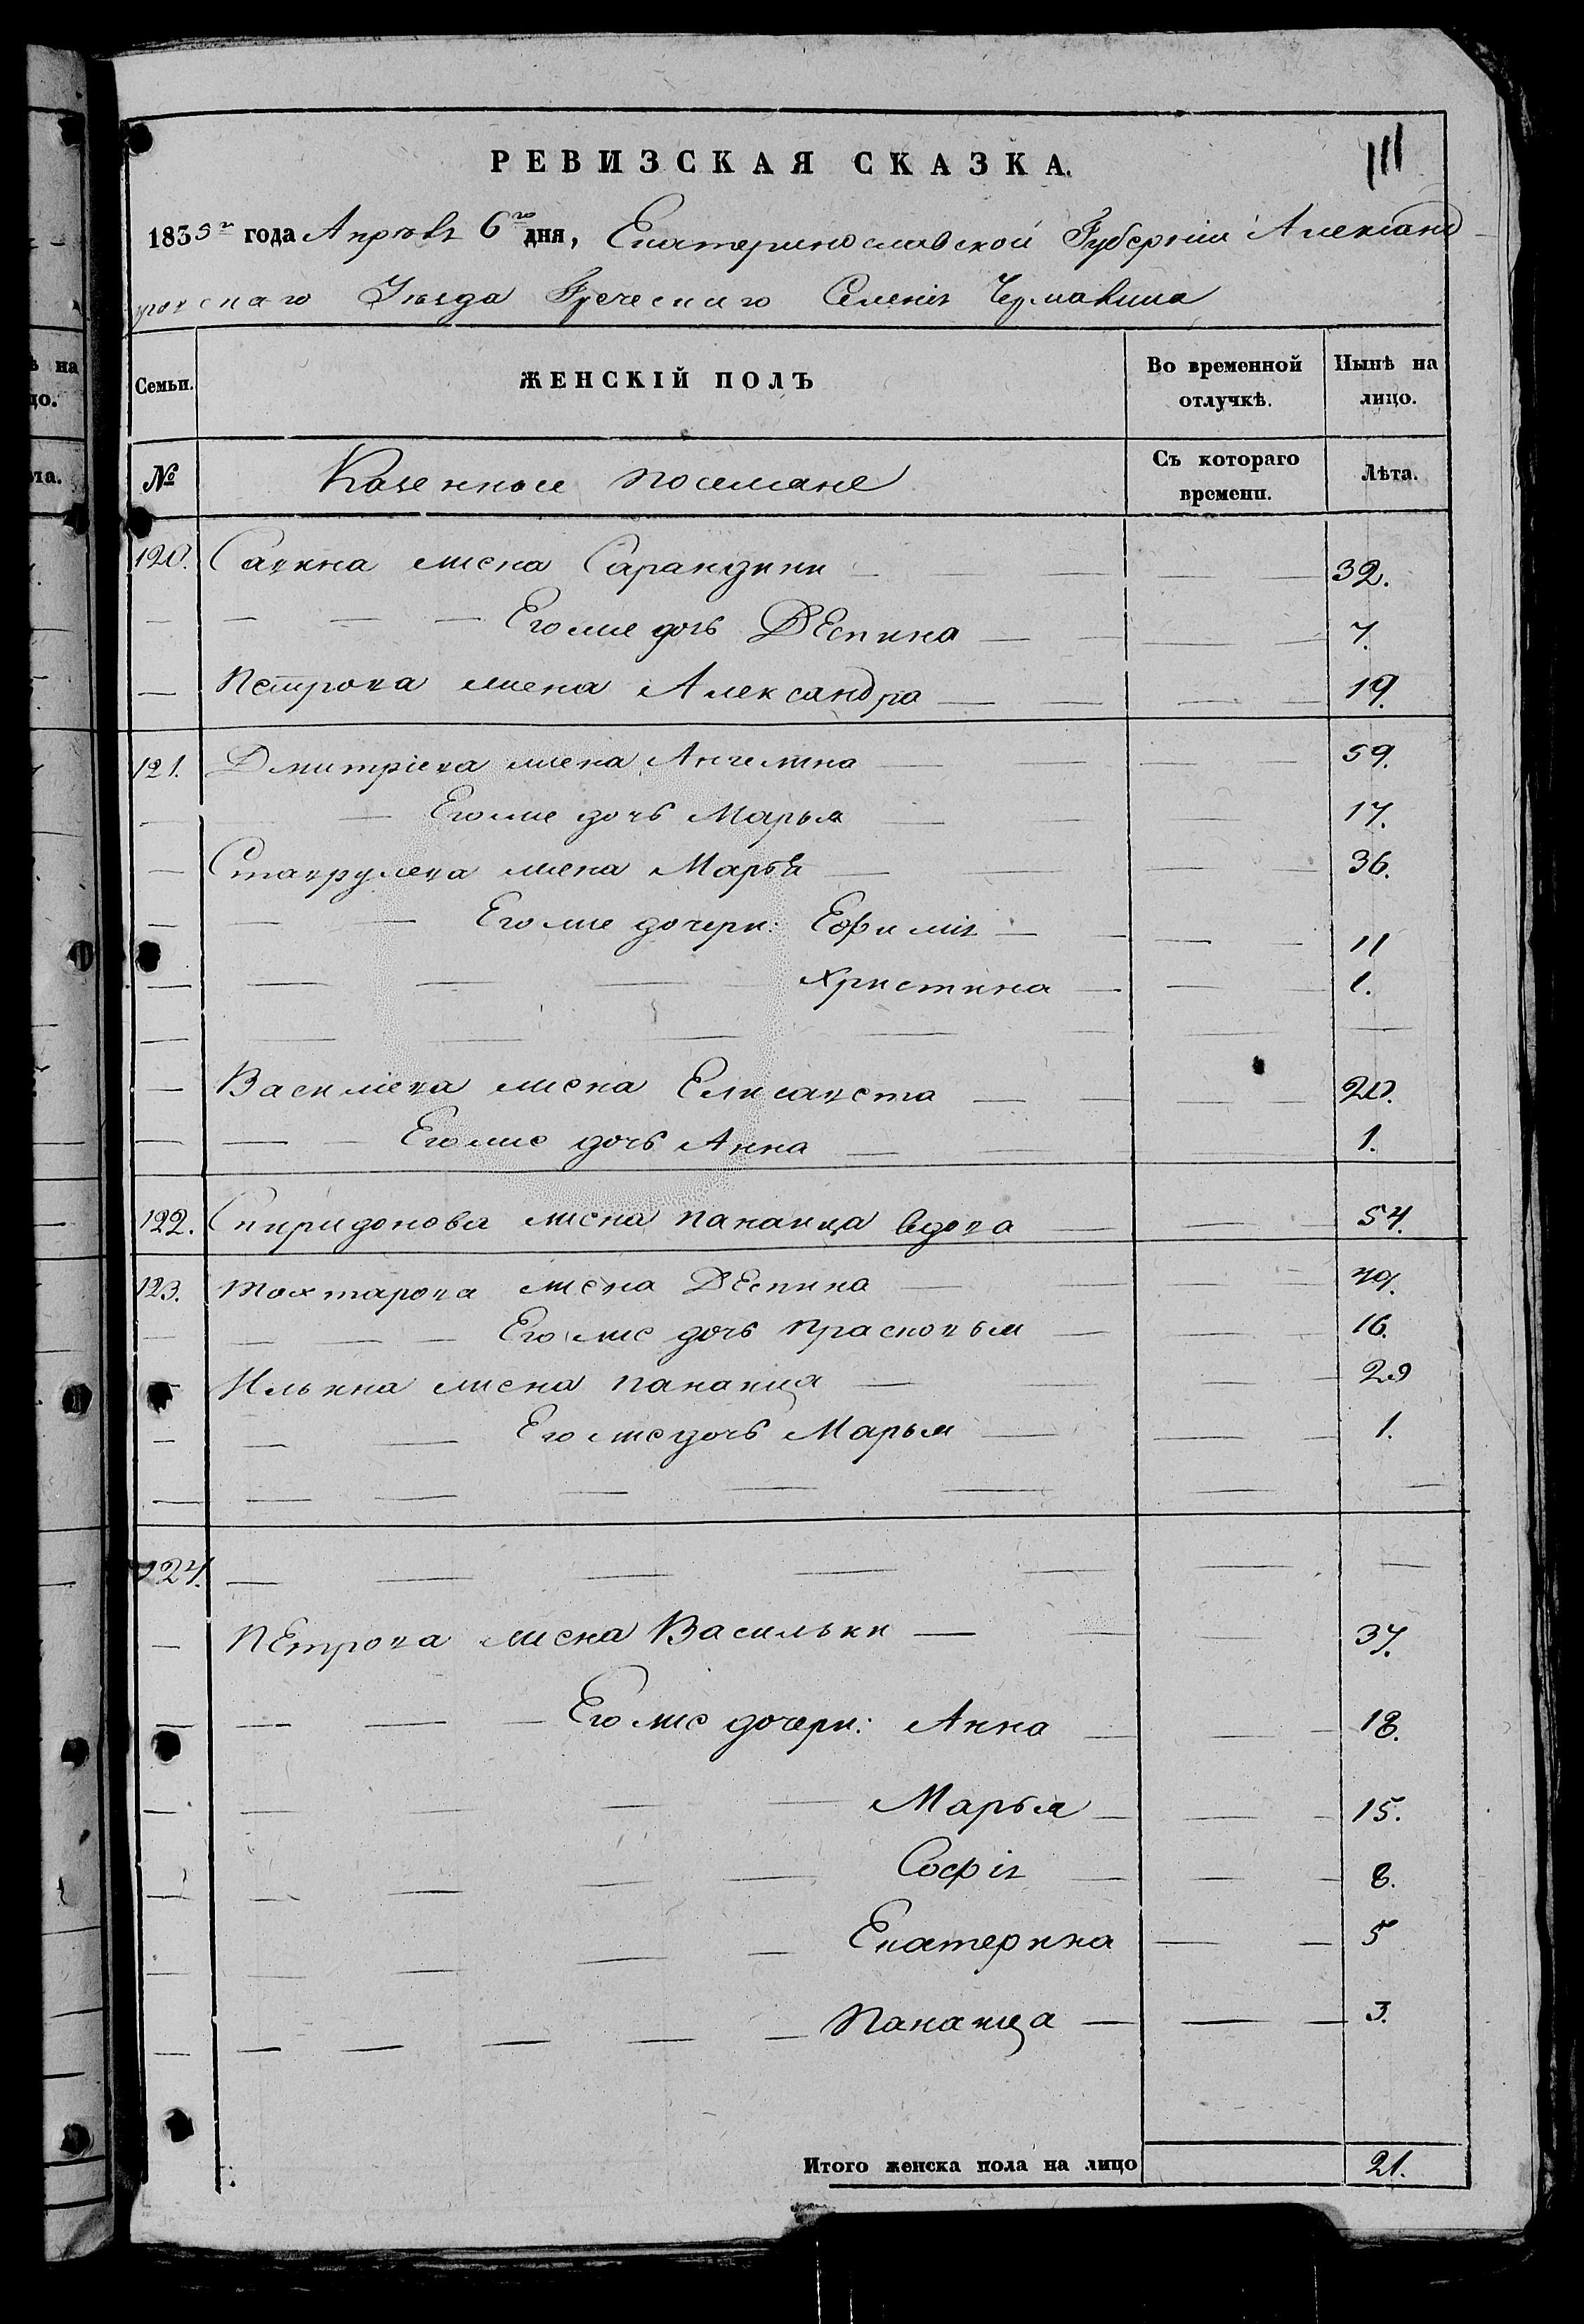 111
РЕВИЗСКАЯ СКАЗКА.
1835го года Апрѣля 6го дня, Екатеринославской Губерніи Александ-
ровскаго Уѣзда Греческаго Селенія Чермалика
Семьи. ЖЕНСКІЙ ПОЛЪ Во временной отлучкѣ. Нынѣ на лицо.
№ Казенные поселяне Съ котораго времени. Лѣта.
120. Саввина жена Сарандини — — — 32.
— — — — Его же дочь Деспина — — — 7.
— Петрова жена Александра — — — — 19.
121. Дмитріева жена Ангелина — — — 59.
— — Его же дочь Марья — — — — 17.
— Ставрулева жена Марья — — — — 36.
— — — Его же дочери: Евфимія — — — — 11
— — — — — Христина — — — 1.
— — — — — — — — — —
— Василіева жена Елисавета — — — — 20.
— — — Его же дочь Анна — — — 1.
122. Спиридонова жена Панаица вдова — — — 54.
123. Тохтарова жена Деспина — — — — 49.
— — — — Его же дочь Прасковья — — — 16.
— Ильина жена Панаица — — — — 29
— — — Его же дочь Марья — — — — 1.
— — — — — — — — — —
124. — — — — — — — —
— Петрова жена Васильки — — — 37.
— — — — Его же дочери: Анна — — — 18.
— — — — — Марья — — — 15.
— — — — — Софія — — — 8.
— — — — Екатерина — — 5
— — — — — — Панаица — — — 3.
Итого женска пола на лицо 21.